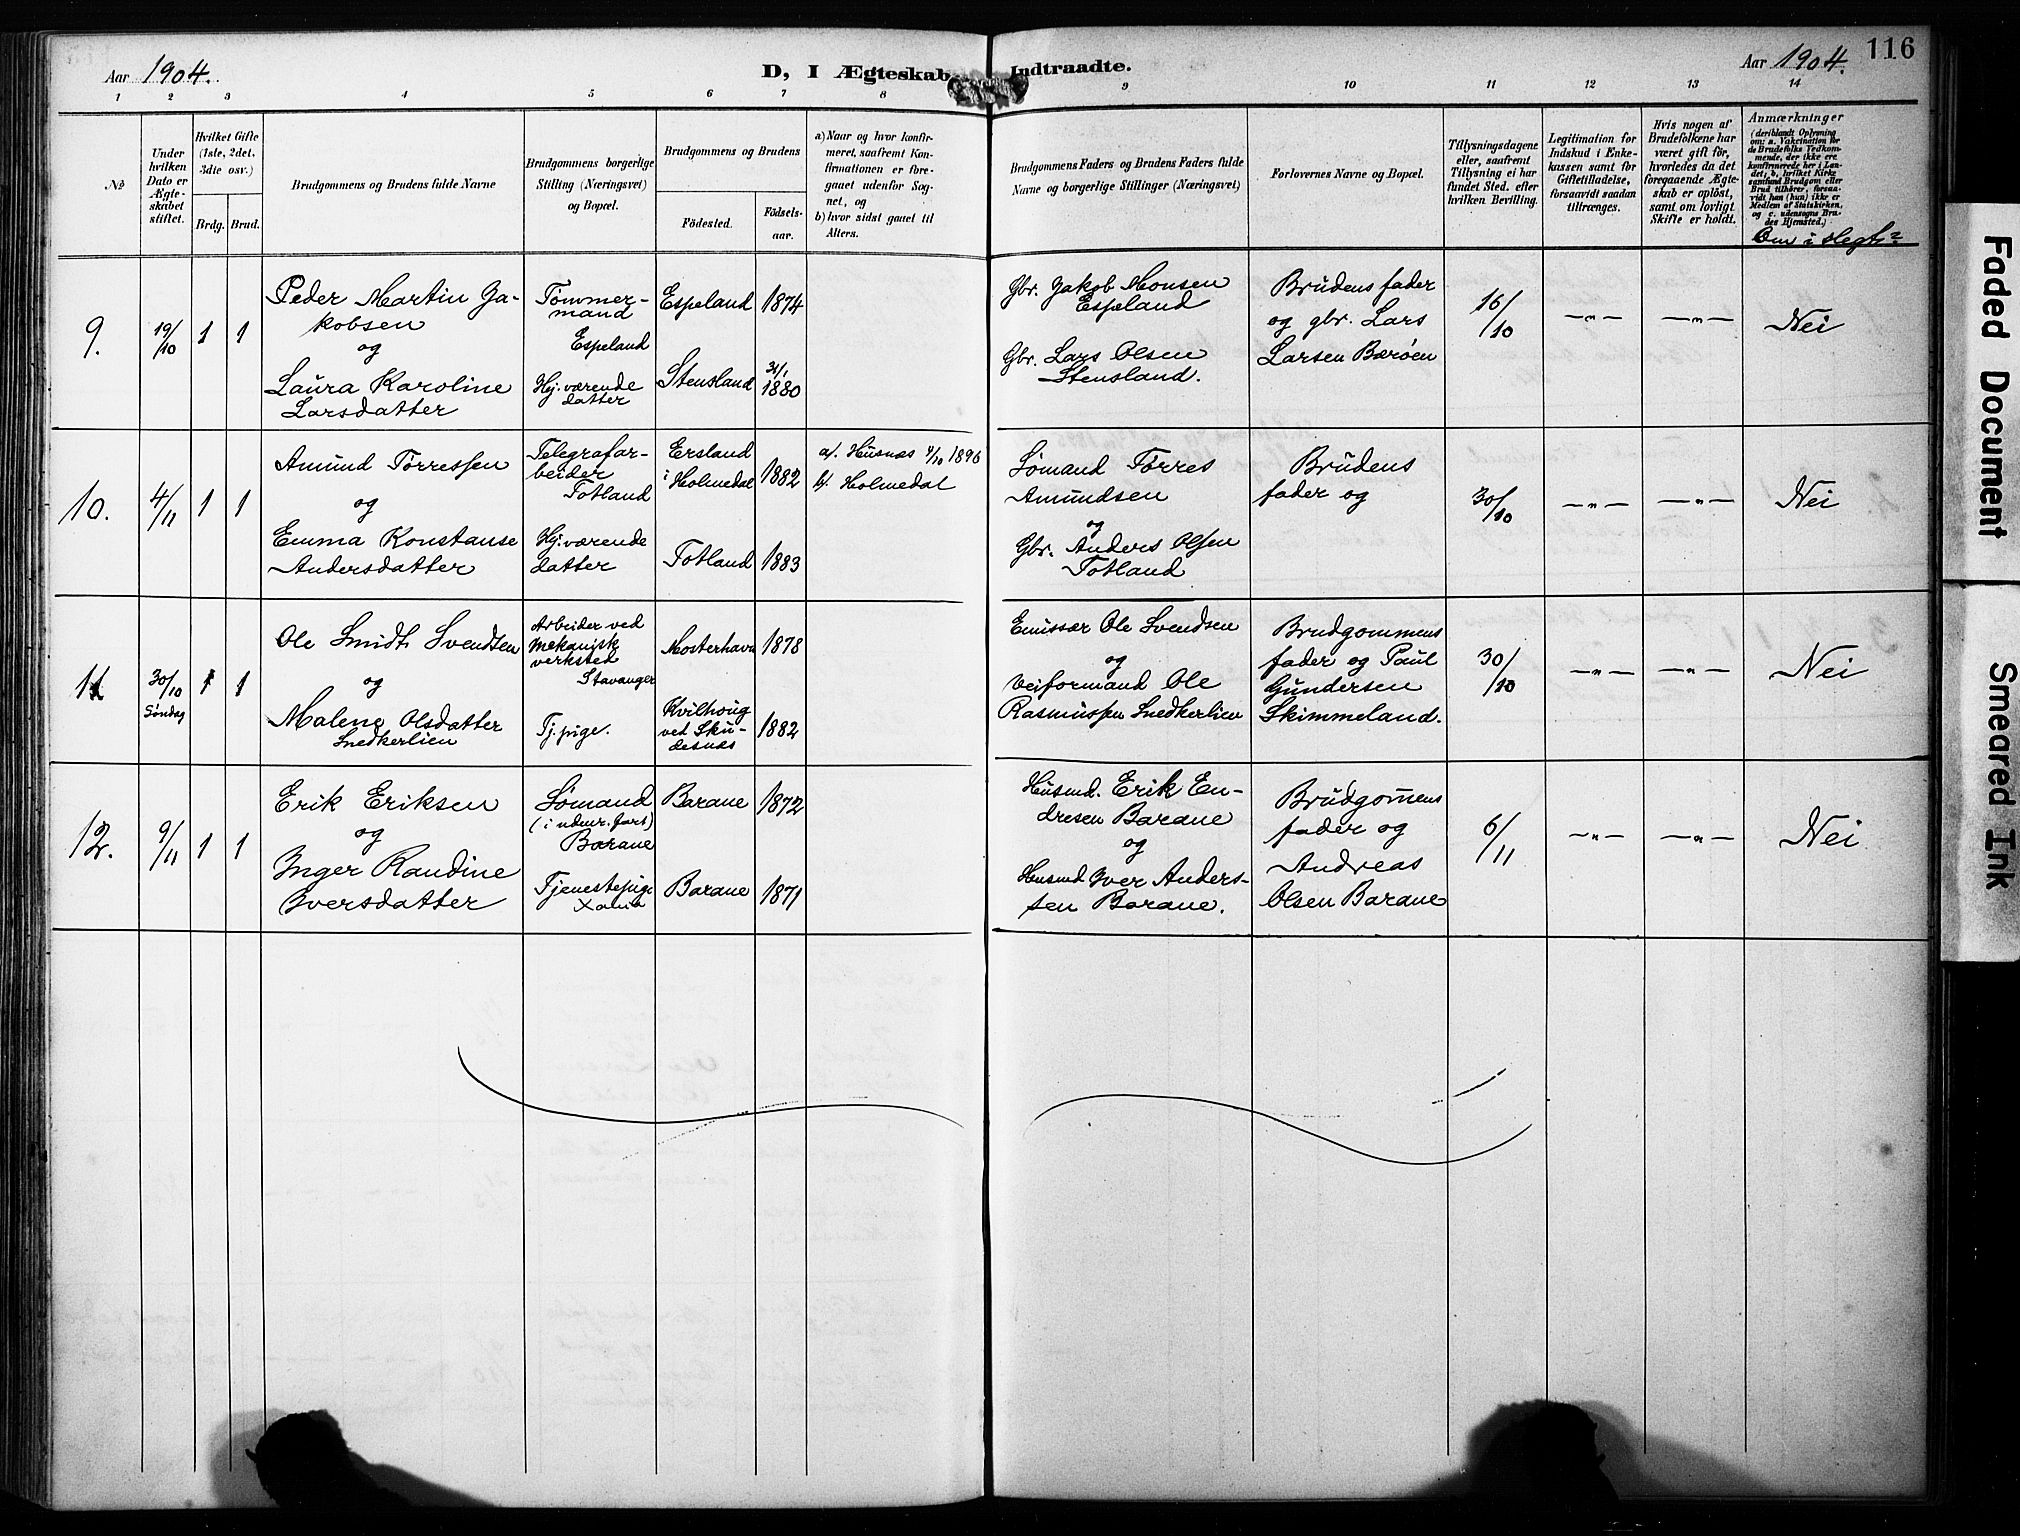 Aar 1904.
D, I Ægteskab Indtraadte.
Aar 1904.
116
1 2 3 4 5 6 7 8 9 10 11 12 13 14
No
Under hvilken Dato er Ægteskabet stiftet.
Hvilket Gifte (1ste, 2det, 3die osv.)
Brdg. Brud.
Brudgommens og Brudens fulde Navne
Brudgommens borgerlige Stilling (Næringsvei) og Bopæl.
Brudgommens og Brudens
Födested.
Födselsaar.
a) Naar og hvor konfirmeret, saafremt Konfirmationen er foregaaet udenfor Sognet, og
b) hvor sidst gaaet til Alters.
Brudgommens Faders og Brudens Faders fulde Navne og borgerlige Stillinger (Næringsvei)
Forlovernes Navne og Bopæl.
Tillysningsdagene eller, saafremt Tillysning ei har fundet Sted, efter hvilken Bevilling.
Legitimation for Indskud i Enkekassen samt for Giftetilladelse, forsaavidt saadan tiltrænges.
Hvis nogen af Brudefolkene har været gift för, hvorledes da det foregaaende Ægteskab er oplöst, samt om lovligt Skifte er holdt.
Anmærkninger
(deriblandt Oplysning om: a. Vakcination for de Brudefolks Vedkommende, der ikke ere konfirmerede her i Landet; b. hvilket Kirkesamfund Brudgom eller Brud tilhörer, forsaavidt han (hun) ikke er Medlem af Statskirken, og c. udensogns Brudes Hjemsted.)
Om i slegt?
9.
19/10
1 1
Peder Martin Ja-
kobsen
og
Laura Karoline
Larsdatter
Tømmer-
mand
Espeland
Hj. værende
datter
Espeland
Stensland
1874
31/1
1880
Gbr. Jakob Monsen
Espeland
Gbr. Lars Olsen
Stensland.
Brudens fader
og gbr. Lars
Larsen Barøen
16/10
—"—
—"—
Nei
10.
4/11
1 1
Amund Tørressen
og
Emma Konstanse
Andersdatter
Telegrafar-
beider
Totland
Hj. værende
datter
Ersland
i Holmedal
Totland
1882
1883
a/. Husnæs 4/10 1896
b/. Holmedal
Sømand Tørres
Amundsen
og
Gbr. Anders Olsen
Totland
Brudens
fader og
30/10
—"—
—"—
Nei
11
30/10
Søndag
1 1
Ole Smidt Svendsen
og
Malene Olsdatter
Snedkerlien
Arbeider ved
mekanisk
verksted
Stavanger
Tj. pige.
Mosterhavn
Kvilhoug
ved Sku-
desnæs
1878
1882
Emissær Ole Svendsen
og
Veiformand Ole
Rasmussen Snedkerlien
Brudgommens
fader og Paul
Gundersen
Skimmeland.
30/10
—"—
—"—
Nei
12.
9/11
1 1
Erik Eriksen
og
Inger Randine
Iversdatter
Sømand
(i udenr. fart)
Barane
Tjenestepige
Xania
Barane
Barane
1872
1871
Husmd. Erik En-
dresen Barane
og
Husmd Iver Anders-
sen Barane.
Brudgomens
fader og
Andreas
Olsen Barane
6/11
—"—
—"—
Nei
Faded Document
Smeared Ink